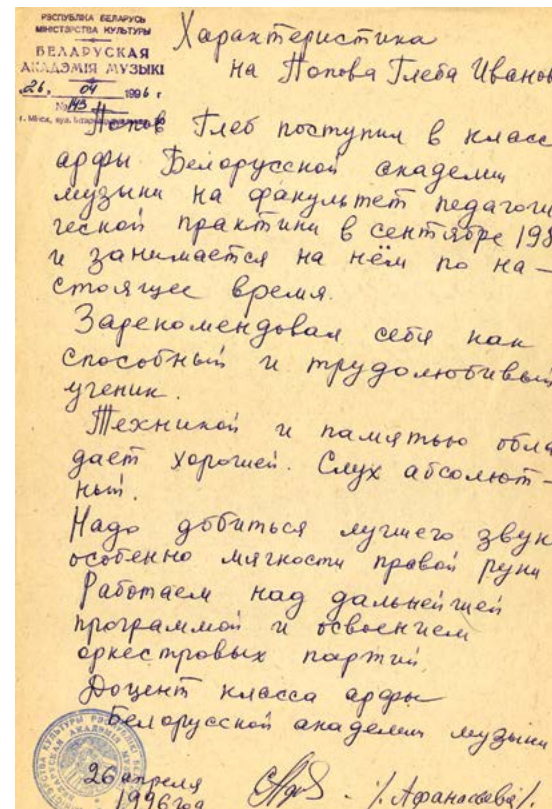 РЭСПУБЛІКА БЕЛАРУСЬ
МІНІСТЭРСТВА КУЛЬТУРЫ
БЕЛАРУСКАЯ
АКАДЭМІЯ МУЗЫКІ
26. 04 1996 г
№ 143
г. Мінск, вул.
Характеристика
на Попова Глеба Иванов
Попов Глеб поступил в класс
арфы Белорусской академии
музыки на факультет педагоги
ческой практики в сентябре 198
и занимается на нём по на-
стоящее время.
Зарекомендовал себя как
способный и трудолюбивый
ученик.
Техникой и памятью обла
дает хорошей. Слух абсолют-
ный.
Надо добиться лучшего звук
особенно мягкости правой руки
Работаем над дальнейшей
программой и освоением
оркестровых партий
Доцент класса арфы
Белорусской академии музыки
26 апреля
1996 год
/. Афанасьева /.